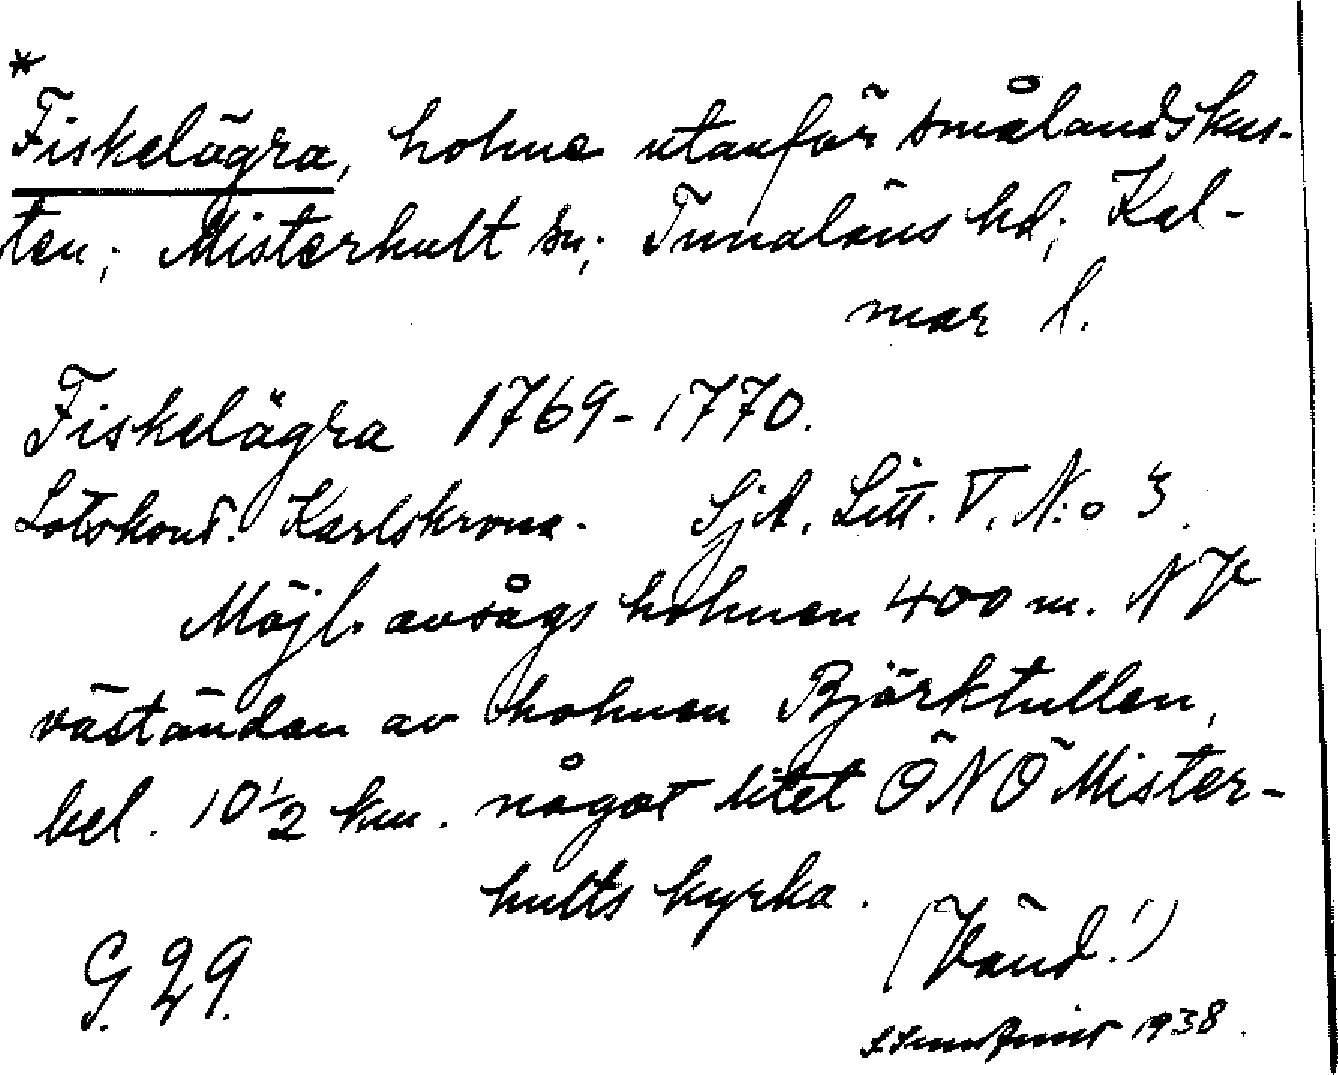 *
Fiskelägra, holme utanför smålandskus-
ten; Misterhult sn; Tunaläns hd; Kal-
mar l.
Fiskelägra 1769-1770.
Lotskont. Karlskrona. SjA. Litt. T. N:o 3.
Möjl. avsågs holmen 400 m. NV
väständan av holmen Björktullen,
bel. 10 1/2 km. något litet ÖNÖ Mister-
hults kyrka.
(Vänd!)
G. 29.
1938.